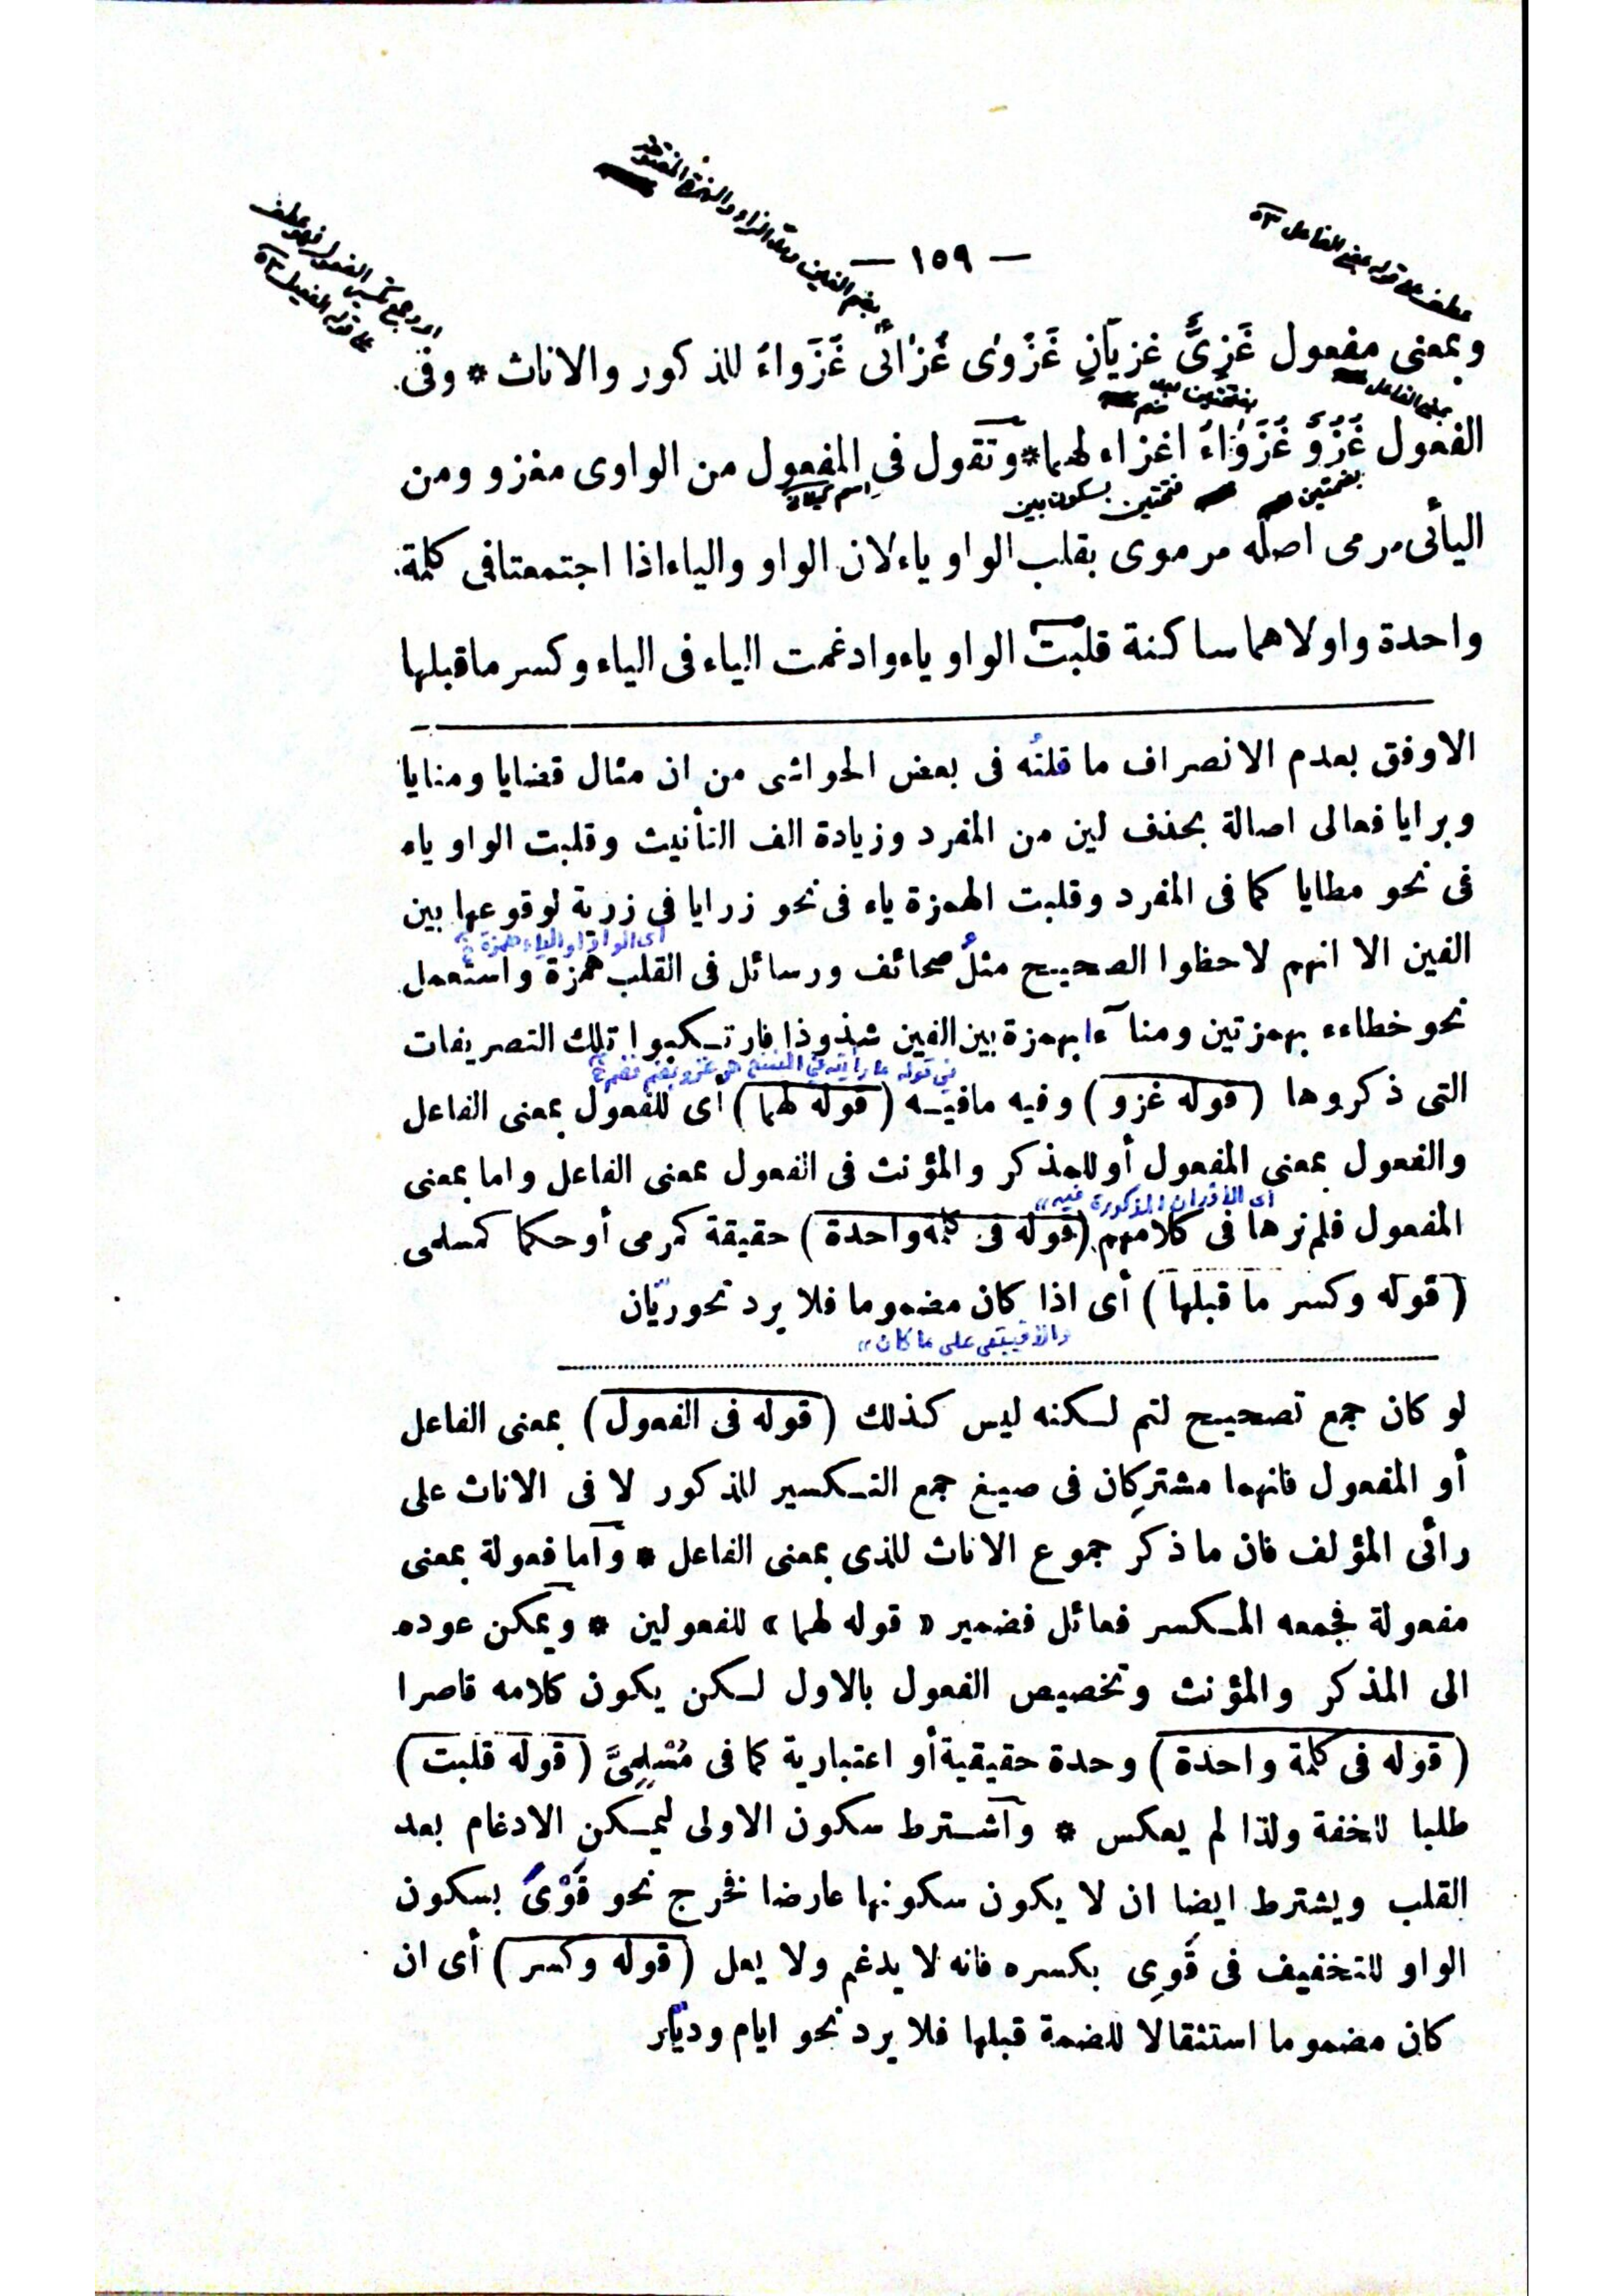 — ١٥٩ —
عطف على قوله بمعنى الفاعل
وبمعنى مفعول غَزِىٌّ غزيانِ غَزْوٰى غُزَاٰنى غُزَواءُ للذكور والاناث * وفى
بمعنى الفاعل
الفعول غُزُوٌّ غُزَوَاءُ اغزاء لهما * وتقول فى المفعول من الواوى مغزو ومن
بضمتين فتحتين بسكون بين
اليأئى مرمى اصله مرموى بقلب الواو ياء لان الواو والياء اذا اجتمعتا فى كلمة
واحدة واولاهما ساكنة قلبت الواو ياء وادغمت الياء فى الياء وكسر ماقبلها
الاوفق بعدم الانصراف ما قلتُه فى بعض الحواشى من ان مثال قضايا ومنايا
وبرايا فعالى اصالة بحذف لين من المفرد وزيادة الف التأنيث وقلبت الواو ياء
فى نحو مطايا كما فى المفرد وقلبت الهمزة ياء فى نحو زرايا فى زرية لوقوعها بين
أى الواو او الياء همزة
الفين الا انهم لاحظوا الصحيح مثلُ صحائف ورسائل فى القلب همزة واستعمل
نحو خطاءء بهمزتين ومنآءا بهمزة بين الفين شذوذا فارتكبوا تلك التصريفات
فى قوله ما رأيته فى النسخ هو غزو بضم فضم
التى ذكروها ( قوله غزو ) وفيه مافيه ( قوله لهما ) أى للفعول بمعنى الفاعل
والفعول بمعنى المفعول أو للمذكر والمؤنث فى الفعول بمعنى الفاعل واما بمعنى
أى الأوزان المذكورة فيه
المفعول فلم نرها فى كلامهم ( قوله فى كلمة واحدة ) حقيقة كمرمى أو حكما كمسلمى
( قوله وكسر ما قبلها ) أى اذا كان مضموما فلا يرد نحو ريّان
والا فيبقى على ما كان
لو كان جمع تصحيح لتم لكنه ليس كذلك ( قوله فى الفعول ) بمعنى الفاعل
أو المفعول فانهما مشتركان فى صيغ جمع التكسير للذكور لا فى الاناث على
رأى المؤلف فان ما ذكر جموع الاناث للذى بمعنى الفاعل * واما فعولة بمعنى
مفعولة فجمعه المكسر فعائل فضمير « قوله لهما » للفعولين * ويمكن عوده
الى المذكر والمؤنث وتخصيص الفعول بالاول لكن يكون كلامه قاصرا
( قوله فى كلمة واحدة ) وحدة حقيقية أو اعتبارية كما فى مُسْلِمِىَّ ( قوله قلبت )
طلبا للخفة ولذا لم يعكس * واشترط سكون الاولى ليمكن الادغام بعد
القلب ويشترط ايضا ان لا يكون سكونها عارضا فخرج نحو قَوْىَ بسكون
الواو للتخفيف فى قَوِى بكسره فانه لا يدغم ولا يعل ( قوله وكسر ) أى ان
كان مضموما استثقالا للضمة قبلها فلا يرد نحو ايام وديّار